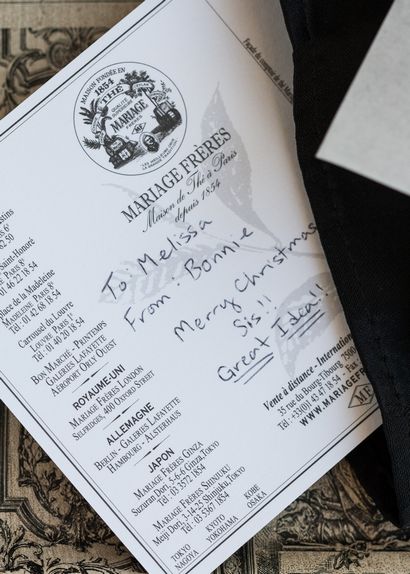 MAISON FONDÉE EN
1854
THÉ
QUALITÉ
MARIAGE
FRÈRES
MARIAGE FRÈRES
Maison de Thé à Paris
depuis 1854
To: Melissa
From: Bonnie
Merry Christmas
Sis!!
Great Idea!!
PARIS 6e
Saint-Honoré
PARIS 8e
01 46 22 18 54
Place de la Madeleine
MADELEINE PARIS 8e
Tél : 01 42 68 18 54
Carrousel du Louvre
LOUVRE PARIS 1er
Tél : 01 40 20 18 54
BON MARCHÉ - PRINTEMPS
GALERIES LAFAYETTE
AÉROPORT ORLY OUEST
ROYAUME-UNI
MARIAGE FRÈRES LONDON
SELFRIDGES, 400 OXFORD STREET
ALLEMAGNE
BERLIN - GALERIES LAFAYETTE
HAMBOURG - ALSTERHAUS
JAPON
MARIAGE FRÈRES GINZA
Suzuran Dori, 5-6-6 Ginza, Tokyo
Tél : 03 3572 1854
MARIAGE FRÈRES SHINJUKU
Meiji Dori, 3-14-25 Shinjuku, Tokyo
Tél : 03 5367 1854
TOKYO KYOTO KOBE
NAGOYA YOKOHAMA OSAKA
Vente à distance - International
35 rue du Bourg-tibourg 7500
Tél : +33(0)1 43 47 18 54 Fax
WWW.MARIAGEF